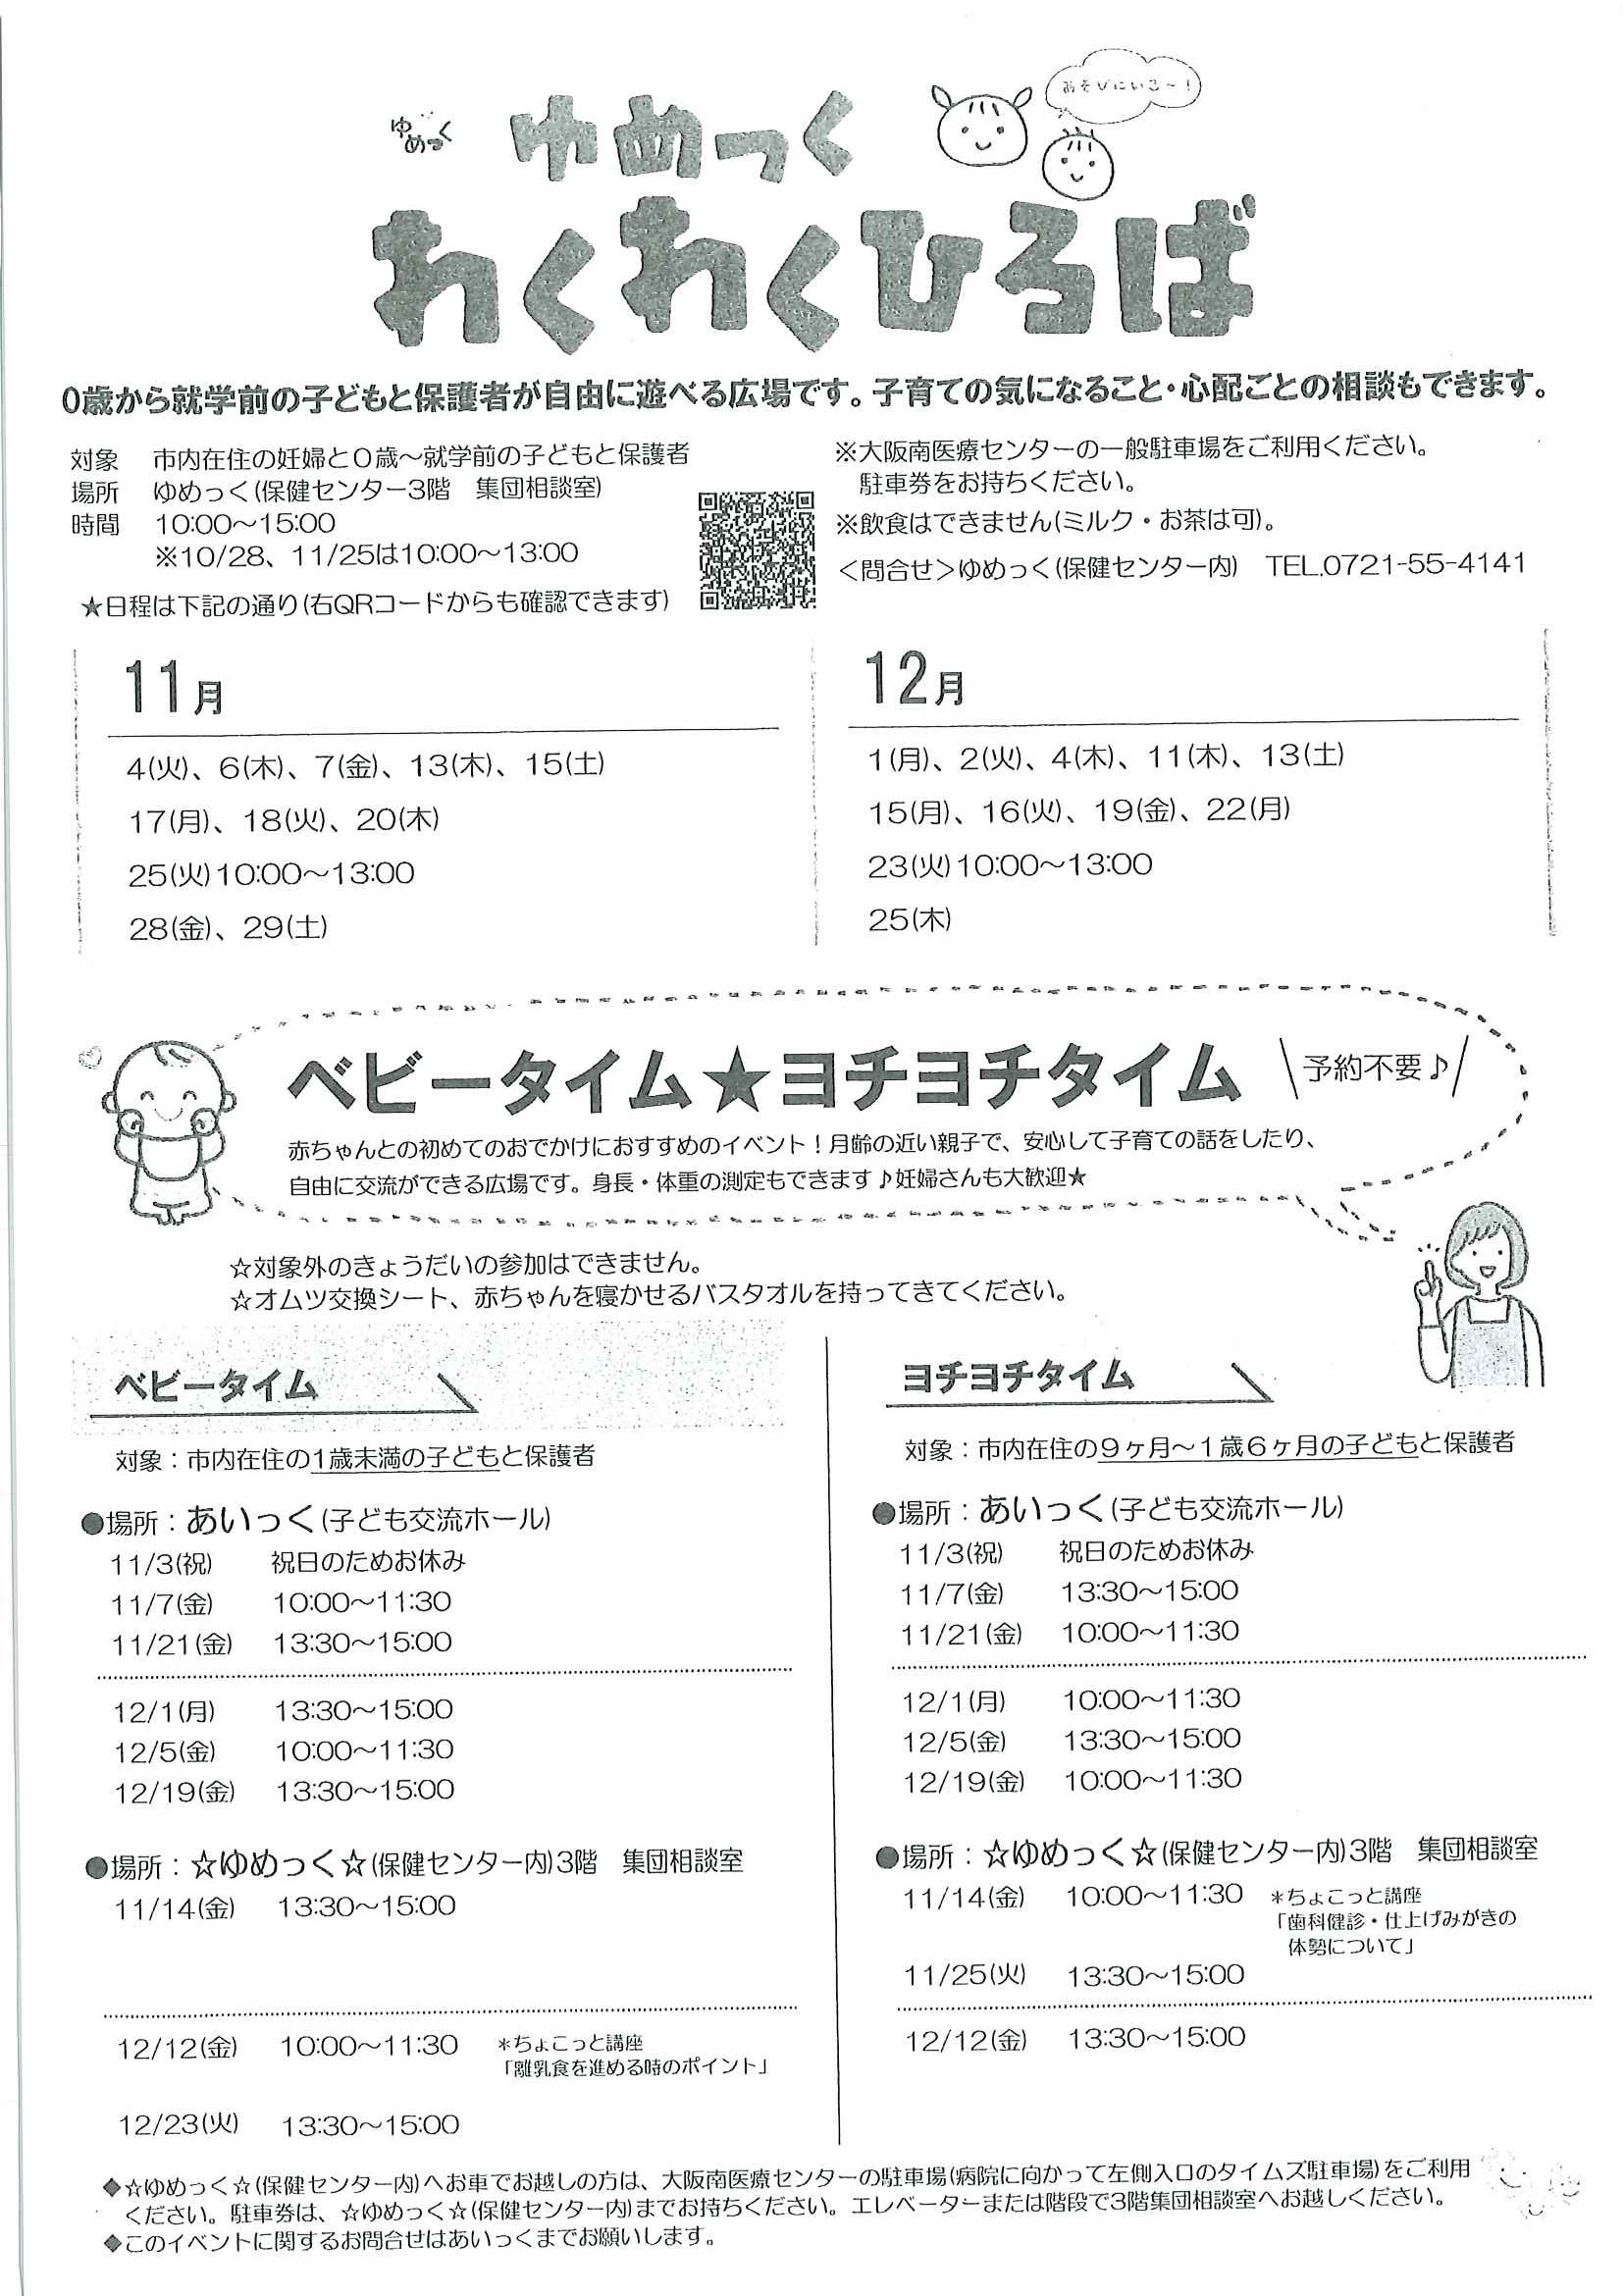 ゆめっく
ゆめっく
あそびにいこ〜！
わくわくひろば
0歳から就学前の子どもと保護者が自由に遊べる広場です。子育ての気になること・心配ごとの相談もできます。
対象　市内在住の妊婦と０歳〜就学前の子どもと保護者
場所　ゆめっく(保健センター3階　集団相談室)
時間　10:00〜15:00
※10/28、11/25は10:00〜13:00
★日程は下記の通り(右QRコードからも確認できます)
※大阪南医療センターの一般駐車場をご利用ください。
駐車券をお持ちください。
※飲食はできません(ミルク・お茶は可)。
＜問合せ＞ゆめっく(保健センター内)　TEL.0721-55-4141
11月
4(火)、6(木)、7(金)、13(木)、15(土)
17(月)、18(火)、20(木)
25(火)10:00〜13:00
28(金)、29(土)
12月
1(月)、2(火)、4(木)、11(木)、13(土)
15(月)、16(火)、19(金)、22(月)
23(火)10:00〜13:00
25(木)
ベビータイム★ヨチヨチタイム
予約不要♪
赤ちゃんとの初めてのおでかけにおすすめのイベント！月齢の近い親子で、安心して子育ての話をしたり、
自由に交流ができる広場です。身長・体重の測定もできます♪妊婦さんも大歓迎★
☆対象外のきょうだいの参加はできません。
☆オムツ交換シート、赤ちゃんを寝かせるバスタオルを持ってきてください。
ベビータイム
対象：市内在住の1歳未満の子どもと保護者
●場所：あいっく(子ども交流ホール)
11/3(祝)　祝日のためお休み
11/7(金)　10:00〜11:30
11/21(金)　13:30〜15:00
12/1(月)　13:30〜15:00
12/5(金)　10:00〜11:30
12/19(金)　13:30〜15:00
●場所：☆ゆめっく☆(保健センター内)3階　集団相談室
11/14(金)　13:30〜15:00
12/12(金)　10:00〜11:30　＊ちょこっと講座
「離乳食を進める時のポイント」
12/23(火)　13:30〜15:00
ヨチヨチタイム
対象：市内在住の９ヶ月〜１歳６ヶ月の子どもと保護者
●場所：あいっく(子ども交流ホール)
11/3(祝)　祝日のためお休み
11/7(金)　13:30〜15:00
11/21(金)　10:00〜11:30
12/1(月)　10:00〜11:30
12/5(金)　13:30〜15:00
12/19(金)　10:00〜11:30
●場所：☆ゆめっく☆(保健センター内)3階　集団相談室
11/14(金)　10:00〜11:30　＊ちょこっと講座
「歯科健診・仕上げみがきの
体勢について」
11/25(火)　13:30〜15:00
12/12(金)　13:30〜15:00
◆☆ゆめっく☆(保健センター内)へお車でお越しの方は、大阪南医療センターの駐車場(病院に向かって左側入口のタイムズ駐車場)をご利用
ください。駐車券は、☆ゆめっく☆(保健センター内)までお持ちください。エレベーターまたは階段で3階集団相談室へお越しください。
◆このイベントに関するお問合せはあいっくまでお願いします。